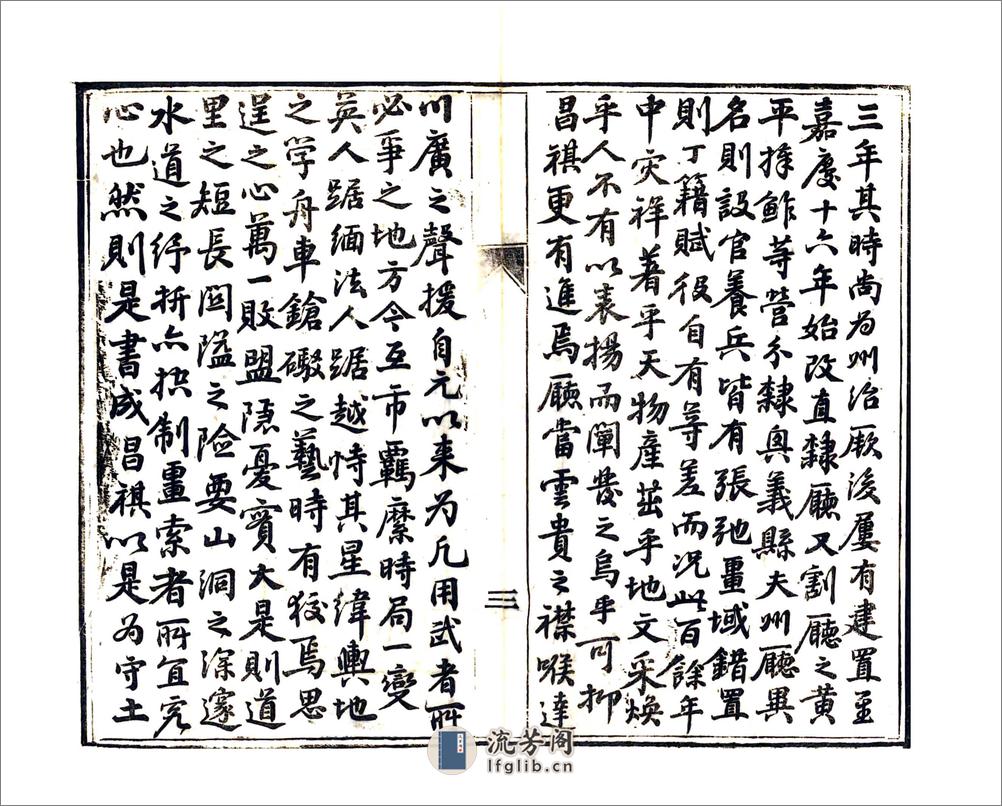 三年其時尚为州治厥後屢有建置至
嘉慶十六年始改直隸廳又割廳之黄
平捧鲊等营分隸興義縣夫州廳異
名則設官養兵皆有張弛畺域錯置
則丁籍賦役自有等差而况此百餘年
中灾祥著乎天物產茁乎地文采焕
乎人不有以表揚而闡發之烏乎可抑
昌祺更有進焉廳當雲貴之襟喉達
川廣之聲援自元以来为凡用武者所
必爭之地方今互市羈縻時局一變
英人踞缅法人踞越恃其星緯輿地
之学舟車鎗礮之藝時有狡焉思
逞之心萬一敗盟隱憂實大是則道
里之短長関隘之险要山洞之深邃
水道之纡折亦扼制畺索者所宜究
心也然則是書成昌祺以是为守土
三
流芳阁
lfglib.cn